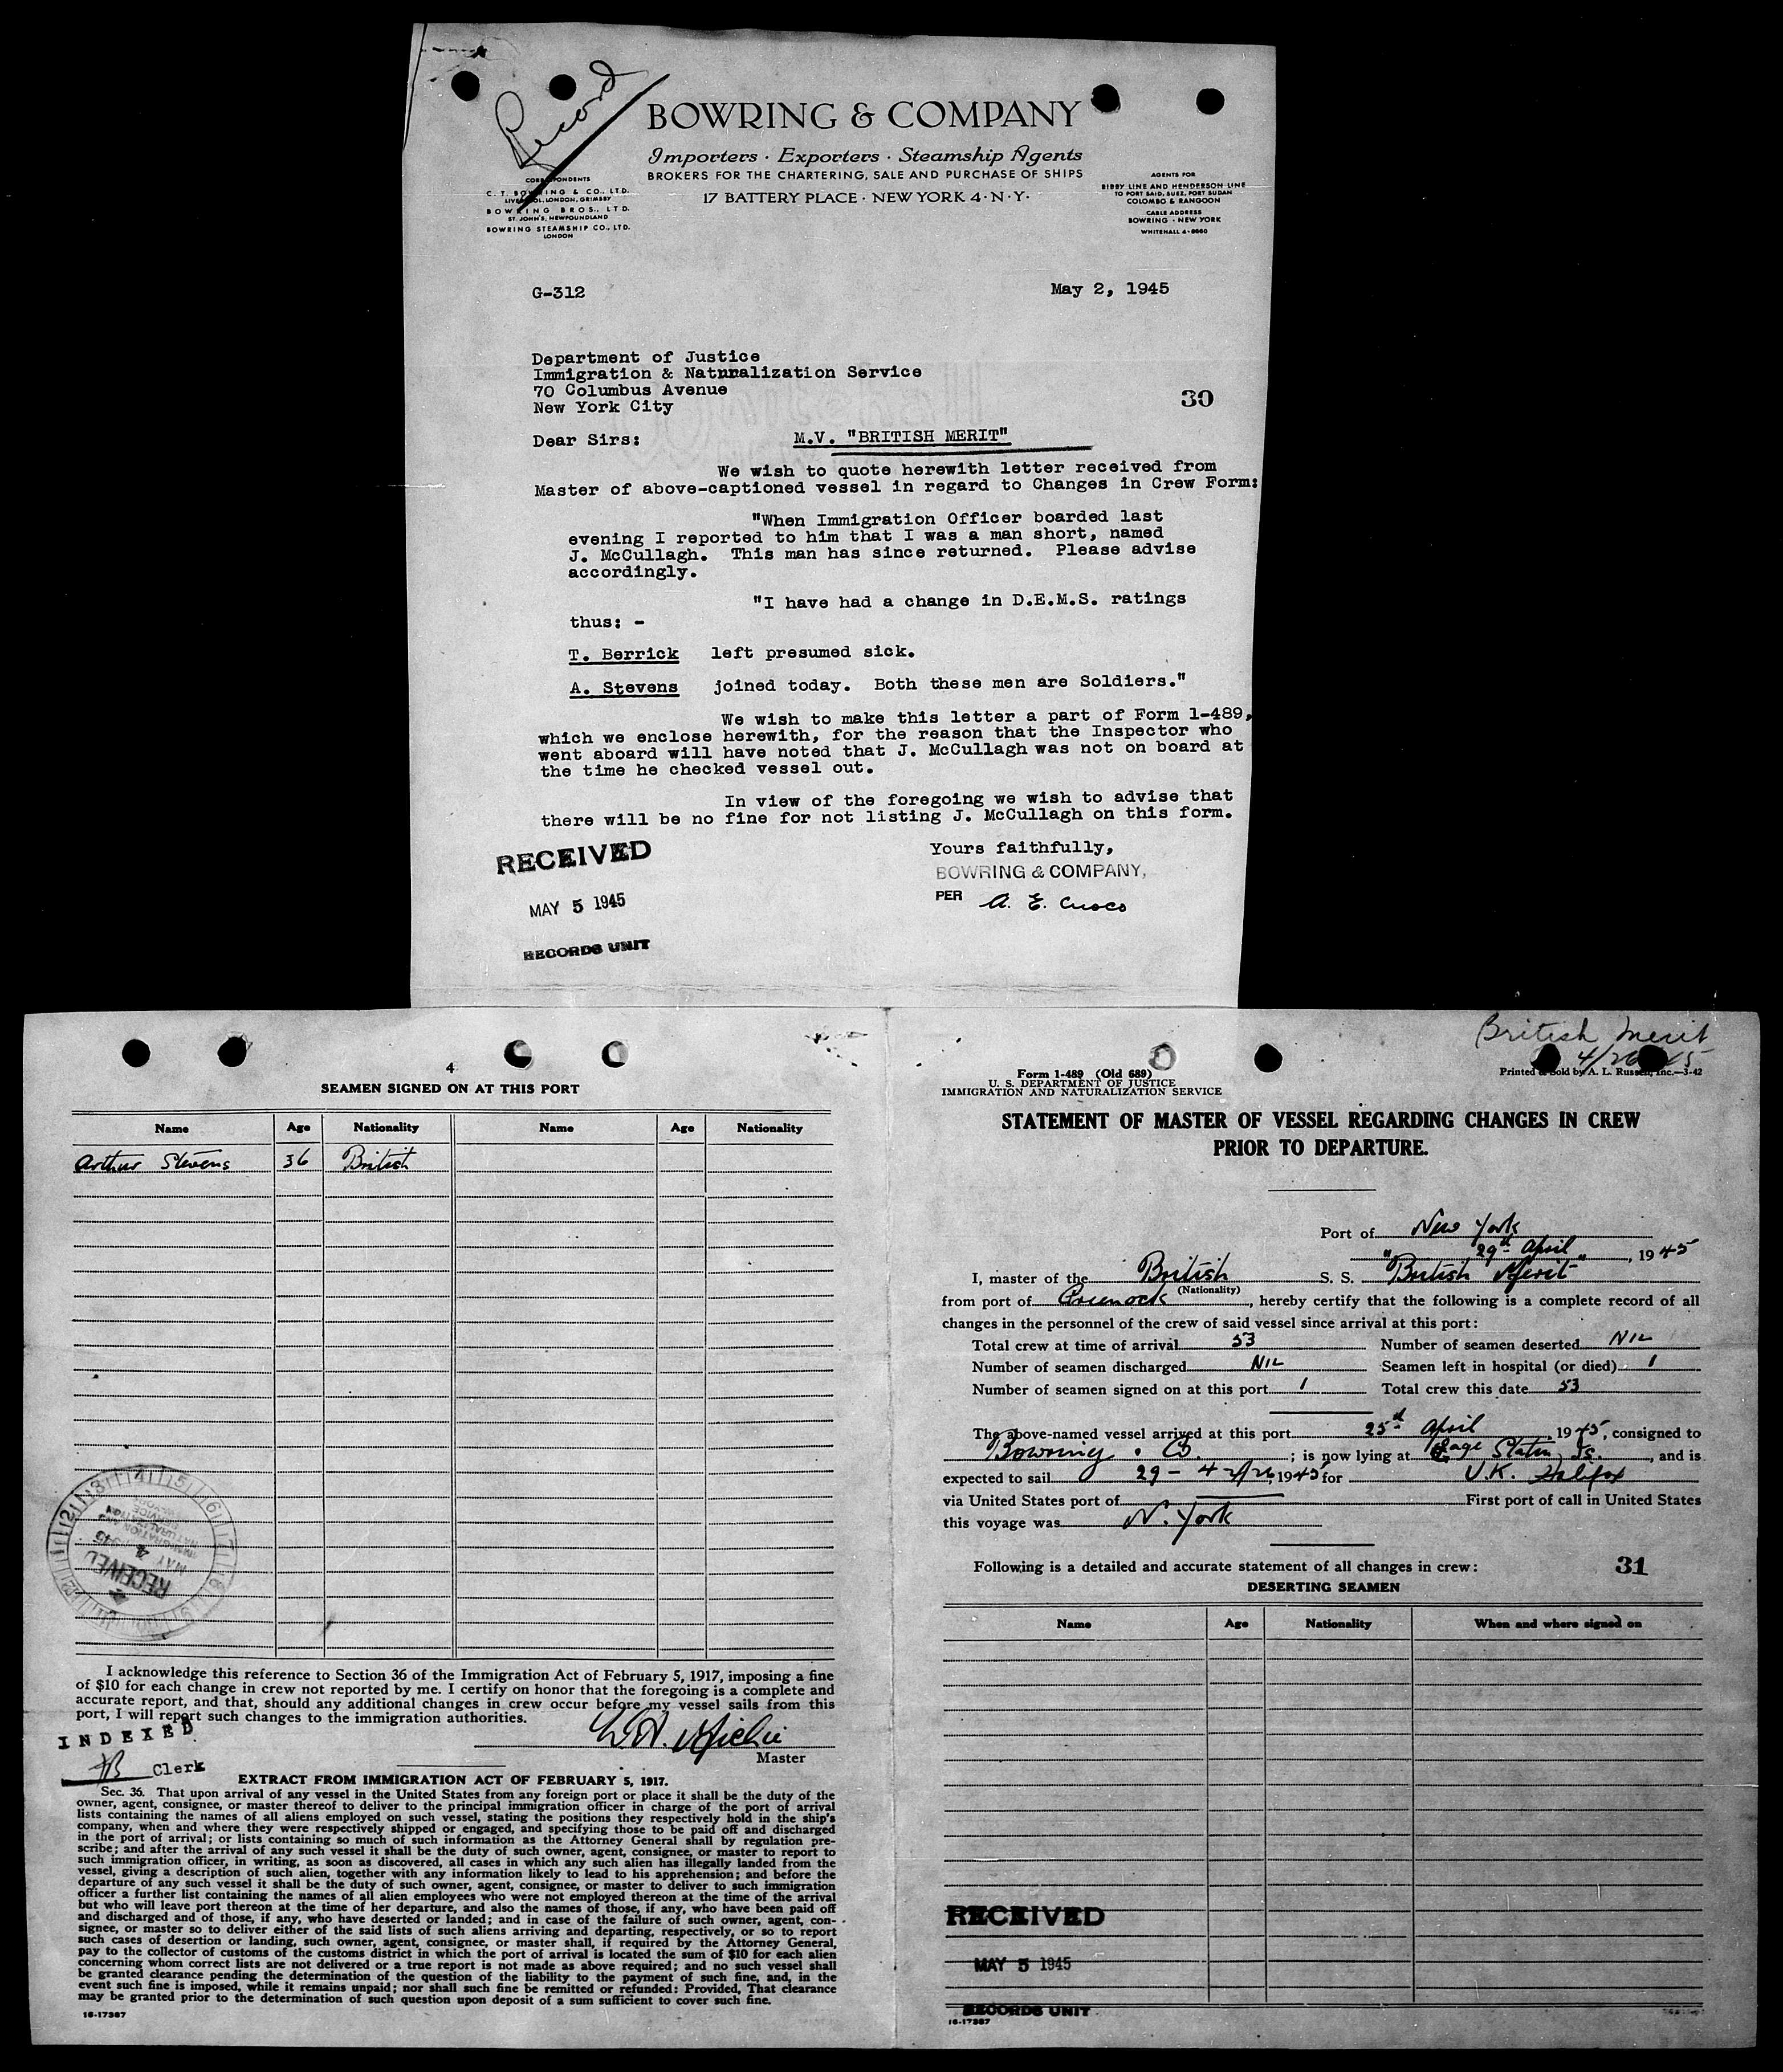 Record
BOWRING & COMPANY
Importers · Exporters · Steamship Agents
BROKERS FOR THE CHARTERING, SALE AND PURCHASE OF SHIPS
17 BATTERY PLACE · NEW YORK 4 · N · Y ·
CORRESPONDENTS
C. T. BOWRING & CO., LTD.
LIVERPOOL, LONDON, GRIMSBY
BOWRING BROS., LTD.
ST. JOHN'S, NEWFOUNDLAND
BOWRING STEAMSHIP CO., LTD.
LONDON
AGENTS FOR
BIBBY LINE AND HENDERSON LINE
TO PORT SAID, SUEZ, PORT SUDAN
COLOMBO & RANGOON
CABLE ADDRESS
BOWRING - NEW YORK
WHITEHALL 4-8660
G-312
May 2, 1945
Department of Justice
Immigration & Naturalization Service
70 Columbus Avenue
New York City
30
Dear Sirs:
M.V. "BRITISH MERIT"
We wish to quote herewith letter received from
Master of above-captioned vessel in regard to Changes in Crew Form:
"When Immigration Officer boarded last
evening I reported to him that I was a man short, named
J. McCullagh. This man has since returned. Please advise
accordingly.
"I have had a change in D.E.M.S. ratings
thus: -
T. Berrick left presumed sick.
A. Stevens joined today. Both these men are Soldiers."
We wish to make this letter a part of Form 1-489,
which we enclose herewith, for the reason that the Inspector who
went aboard will have noted that J. McCullagh was not on board at
the time he checked vessel out.
In view of the foregoing we wish to advise that
there will be no fine for not listing J. McCullagh on this form.
Yours faithfully,
BOWRING & COMPANY,
PER A. E. Cuoco
RECEIVED
MAY 5 1945
RECORDS UNIT
4
SEAMEN SIGNED ON AT THIS PORT
Name Age Nationality Name Age Nationality
Arthur Stevens 36 British
RECEIVED
MAY
I acknowledge this reference to Section 36 of the Immigration Act of February 5, 1917, imposing a fine
of $10 for each change in crew not reported by me. I certify on honor that the foregoing is a complete and
accurate report, and that, should any additional changes in crew occur before my vessel sails from this
port, I will report such changes to the immigration authorities.
Master
INDEXED
Clerk
EXTRACT FROM IMMIGRATION ACT OF FEBRUARY 5, 1917.
Sec. 36. That upon arrival of any vessel in the United States from any foreign port or place it shall be the duty of the
owner, agent, consignee, or master thereof to deliver to the principal immigration officer in charge of the port of arrival
lists containing the names of all aliens employed on such vessel, stating the positions they respectively hold in the ship's
company, when and where they were respectively shipped or engaged, and specifying those to be paid off and discharged
in the port of arrival; or lists containing so much of such information as the Attorney General shall by regulation pre-
scribe; and after the arrival of any such vessel it shall be the duty of such owner, agent, consignee, or master to report to
such immigration officer, in writing, as soon as discovered, all cases in which any such alien has illegally landed from the
vessel, giving a description of such alien, together with any information likely to lead to his apprehension; and before the
departure of any such vessel it shall be the duty of such owner, agent, consignee, or master to deliver to such immigration
officer a further list containing the names of all alien employees who were not employed thereon at the time of the arrival
but who will leave port thereon at the time of her departure, and also the names of those, if any, who have been paid off
and discharged and of those, if any, who have deserted or landed; and in case of the failure of such owner, agent, con-
signee, or master so to deliver either of the said lists of such aliens arriving and departing, respectively, or so to report
such cases of desertion or landing, such owner, agent, consignee, or master shall, if required by the Attorney General,
pay to the collector of customs of the customs district in which the port of arrival is located the sum of $10 for each alien
concerning whom correct lists are not delivered or a true report is not made as above required; and no such vessel shall
be granted clearance pending the determination of the question of the liability to the payment of such fine, and, in the
event such fine is imposed, while it remains unpaid; nor shall such fine be remitted or refunded: Provided, That clearance
may be granted prior to the determination of such question upon deposit of a sum sufficient to cover such fine.
16-17367
British Merit
Form 1-489 (Old 689)
U. S. DEPARTMENT OF JUSTICE
IMMIGRATION AND NATURALIZATION SERVICE
Printed & Sold by A. L. Russell, Inc.—3-42
STATEMENT OF MASTER OF VESSEL REGARDING CHANGES IN CREW
PRIOR TO DEPARTURE.
Port of New York
" 29th April ", 1945
I, master of the British S. S. British Merit
(Nationality)
from port of Greenock, hereby certify that the following is a complete record of all
changes in the personnel of the crew of said vessel since arrival at this port:
Total crew at time of arrival 53 Number of seamen deserted NIL
Number of seamen discharged NIL Seamen left in hospital (or died) 1
Number of seamen signed on at this port 1 Total crew this date 53
The above-named vessel arrived at this port 25th April, 1945, consigned to
Bowring & Co.; is now lying at Staten Is., and is
expected to sail 29-4 1945 for U.K. Halifax
via United States port of First port of call in United States
this voyage was N. York
Following is a detailed and accurate statement of all changes in crew: 31
DESERTING SEAMEN
Name Age Nationality When and where signed on
RECEIVED
MAY 5 1945
RECORDS UNIT
16-17367